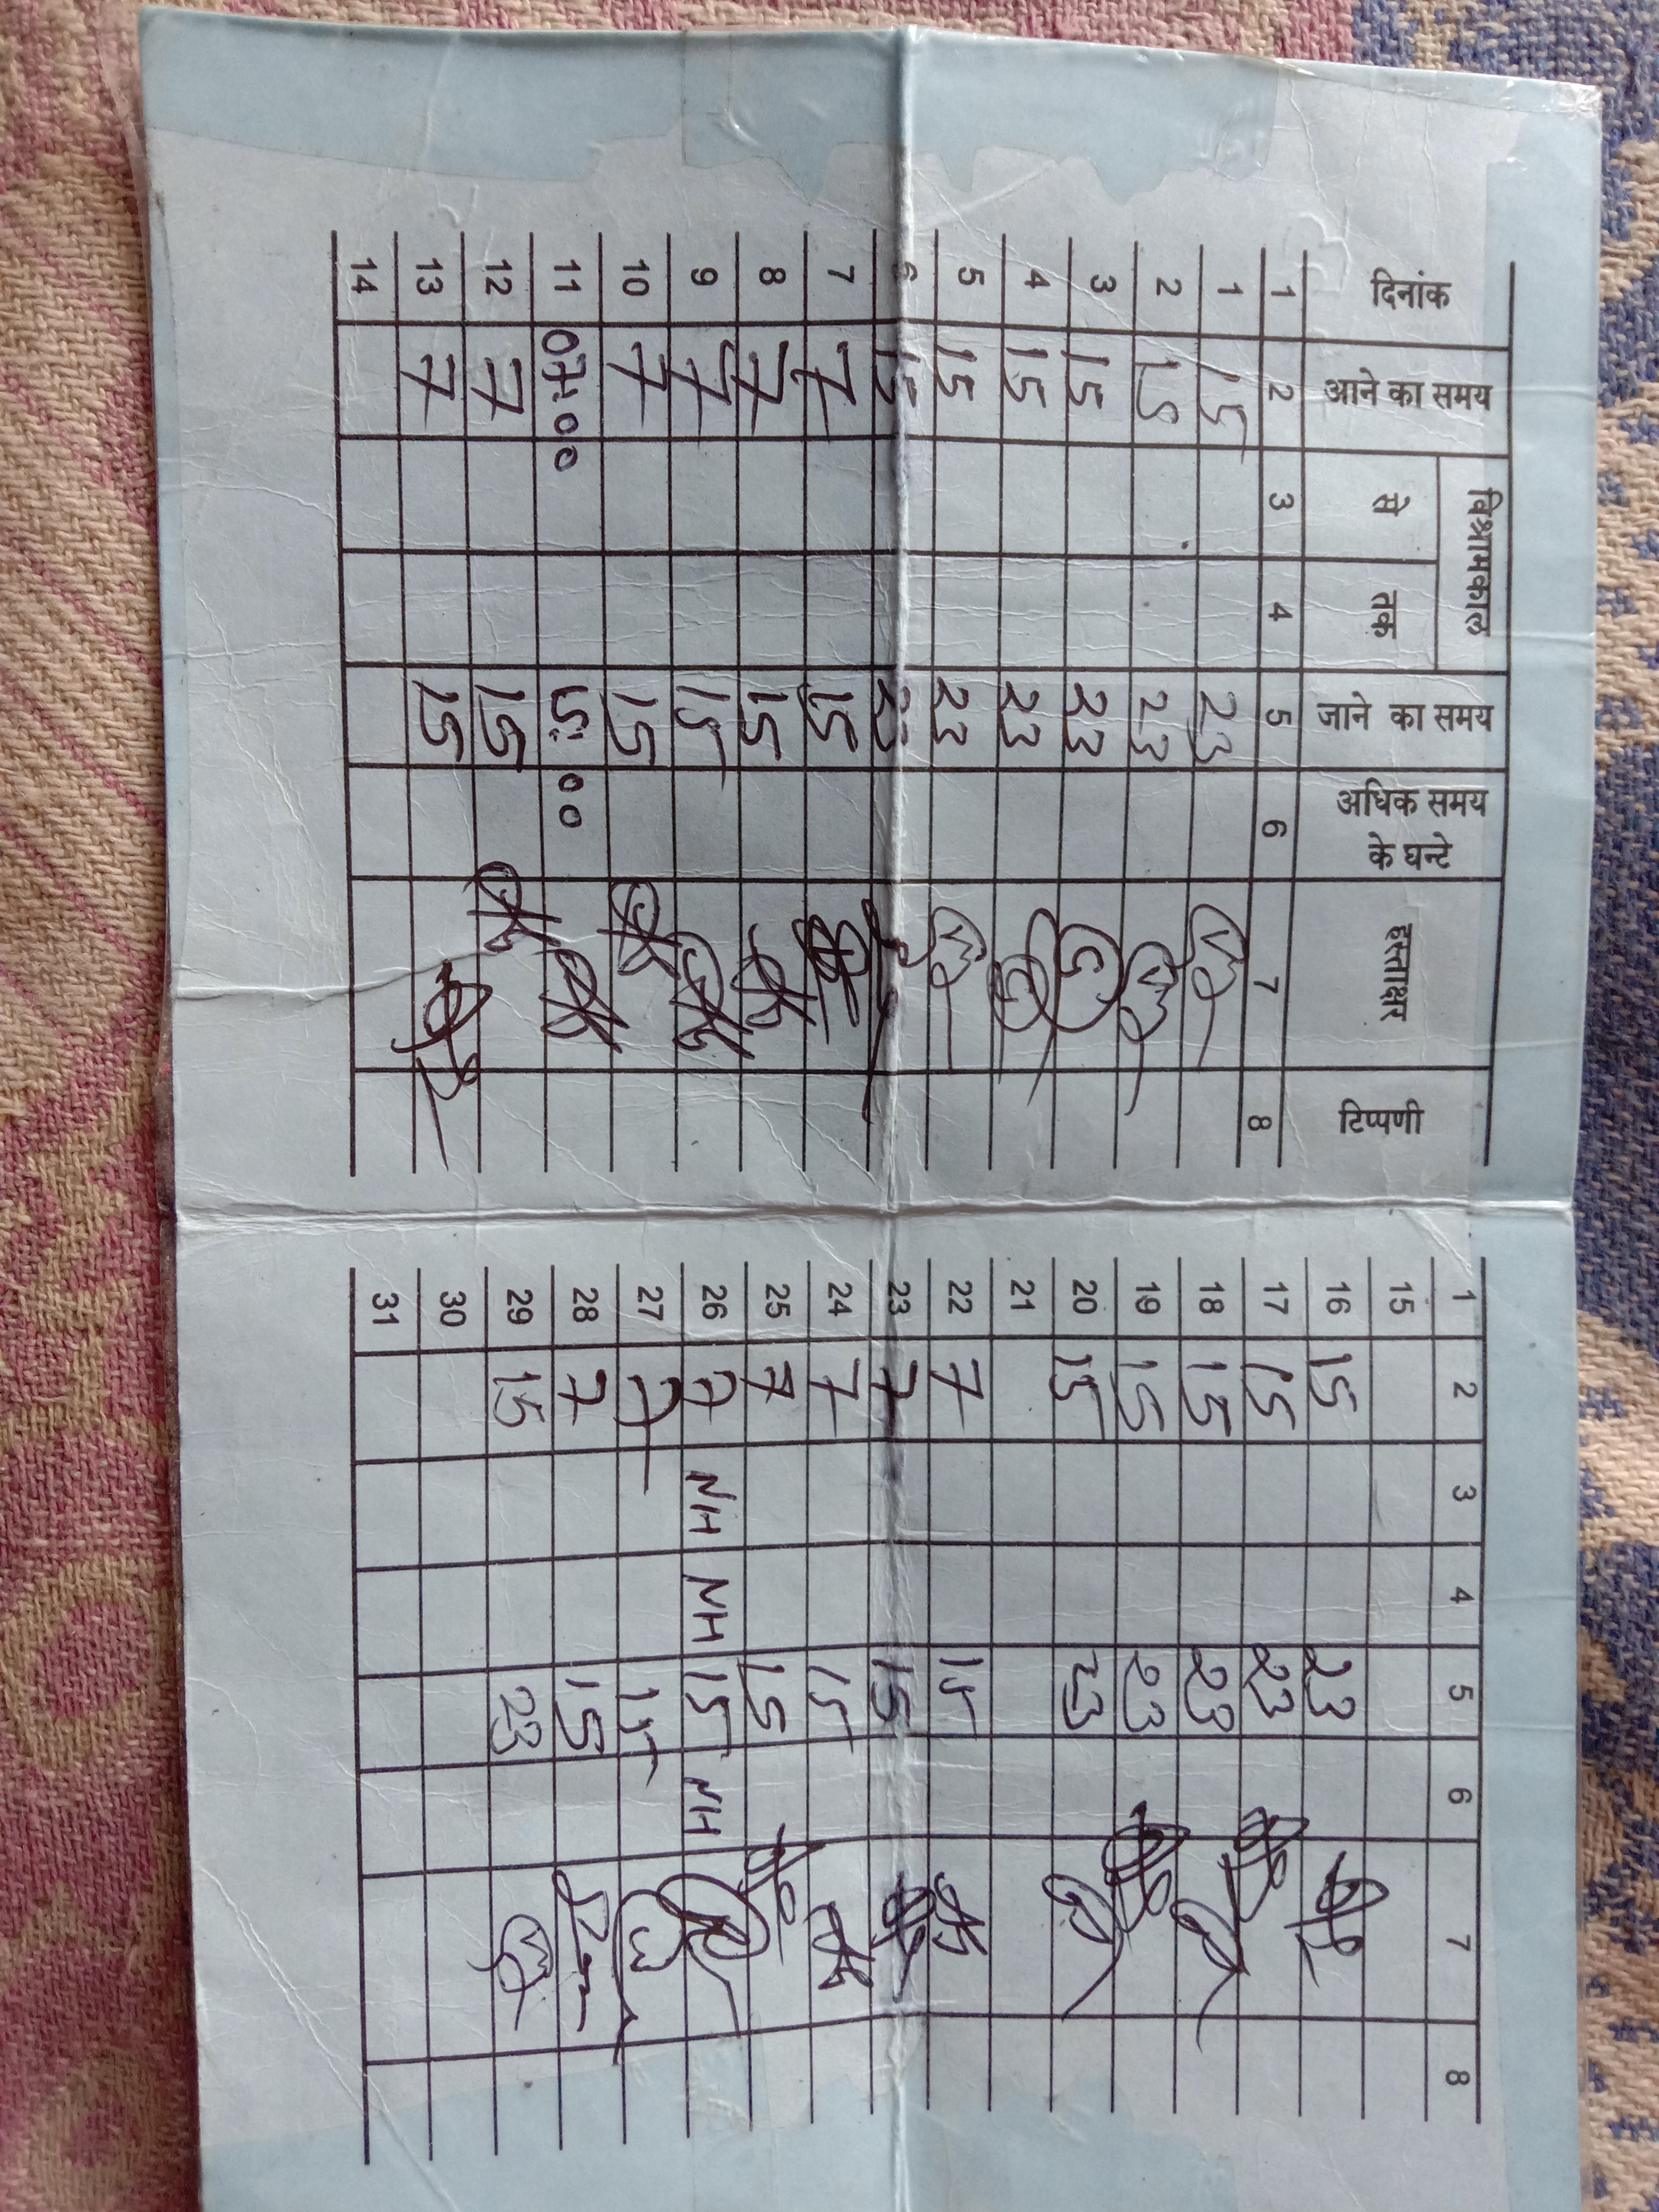 दिनांक आने का समय विश्रामकाल जाने का समय अधिक समय के घन्टे हस्ताक्षर टिप्पणी
से तक
1 2 3 4 5 6 7 8
1 15 23
2 15 23
3 15 23
4 15 23
5 15 23
6 15 23
7 7 15
8 7 15
9 7 15
10 7 15
11 07:00 15:00
12 7 15
13 7 15
14
1 2 3 4 5 6 7 8
15
16 15 23
17 15 23
18 15 23
19 15 23
20 15 23
21
22 7 15
23 7 15
24 7 15
25 7 15
26 7 NH NH 15 NH
27 7 15
28 7 15
29 15 23
30
31